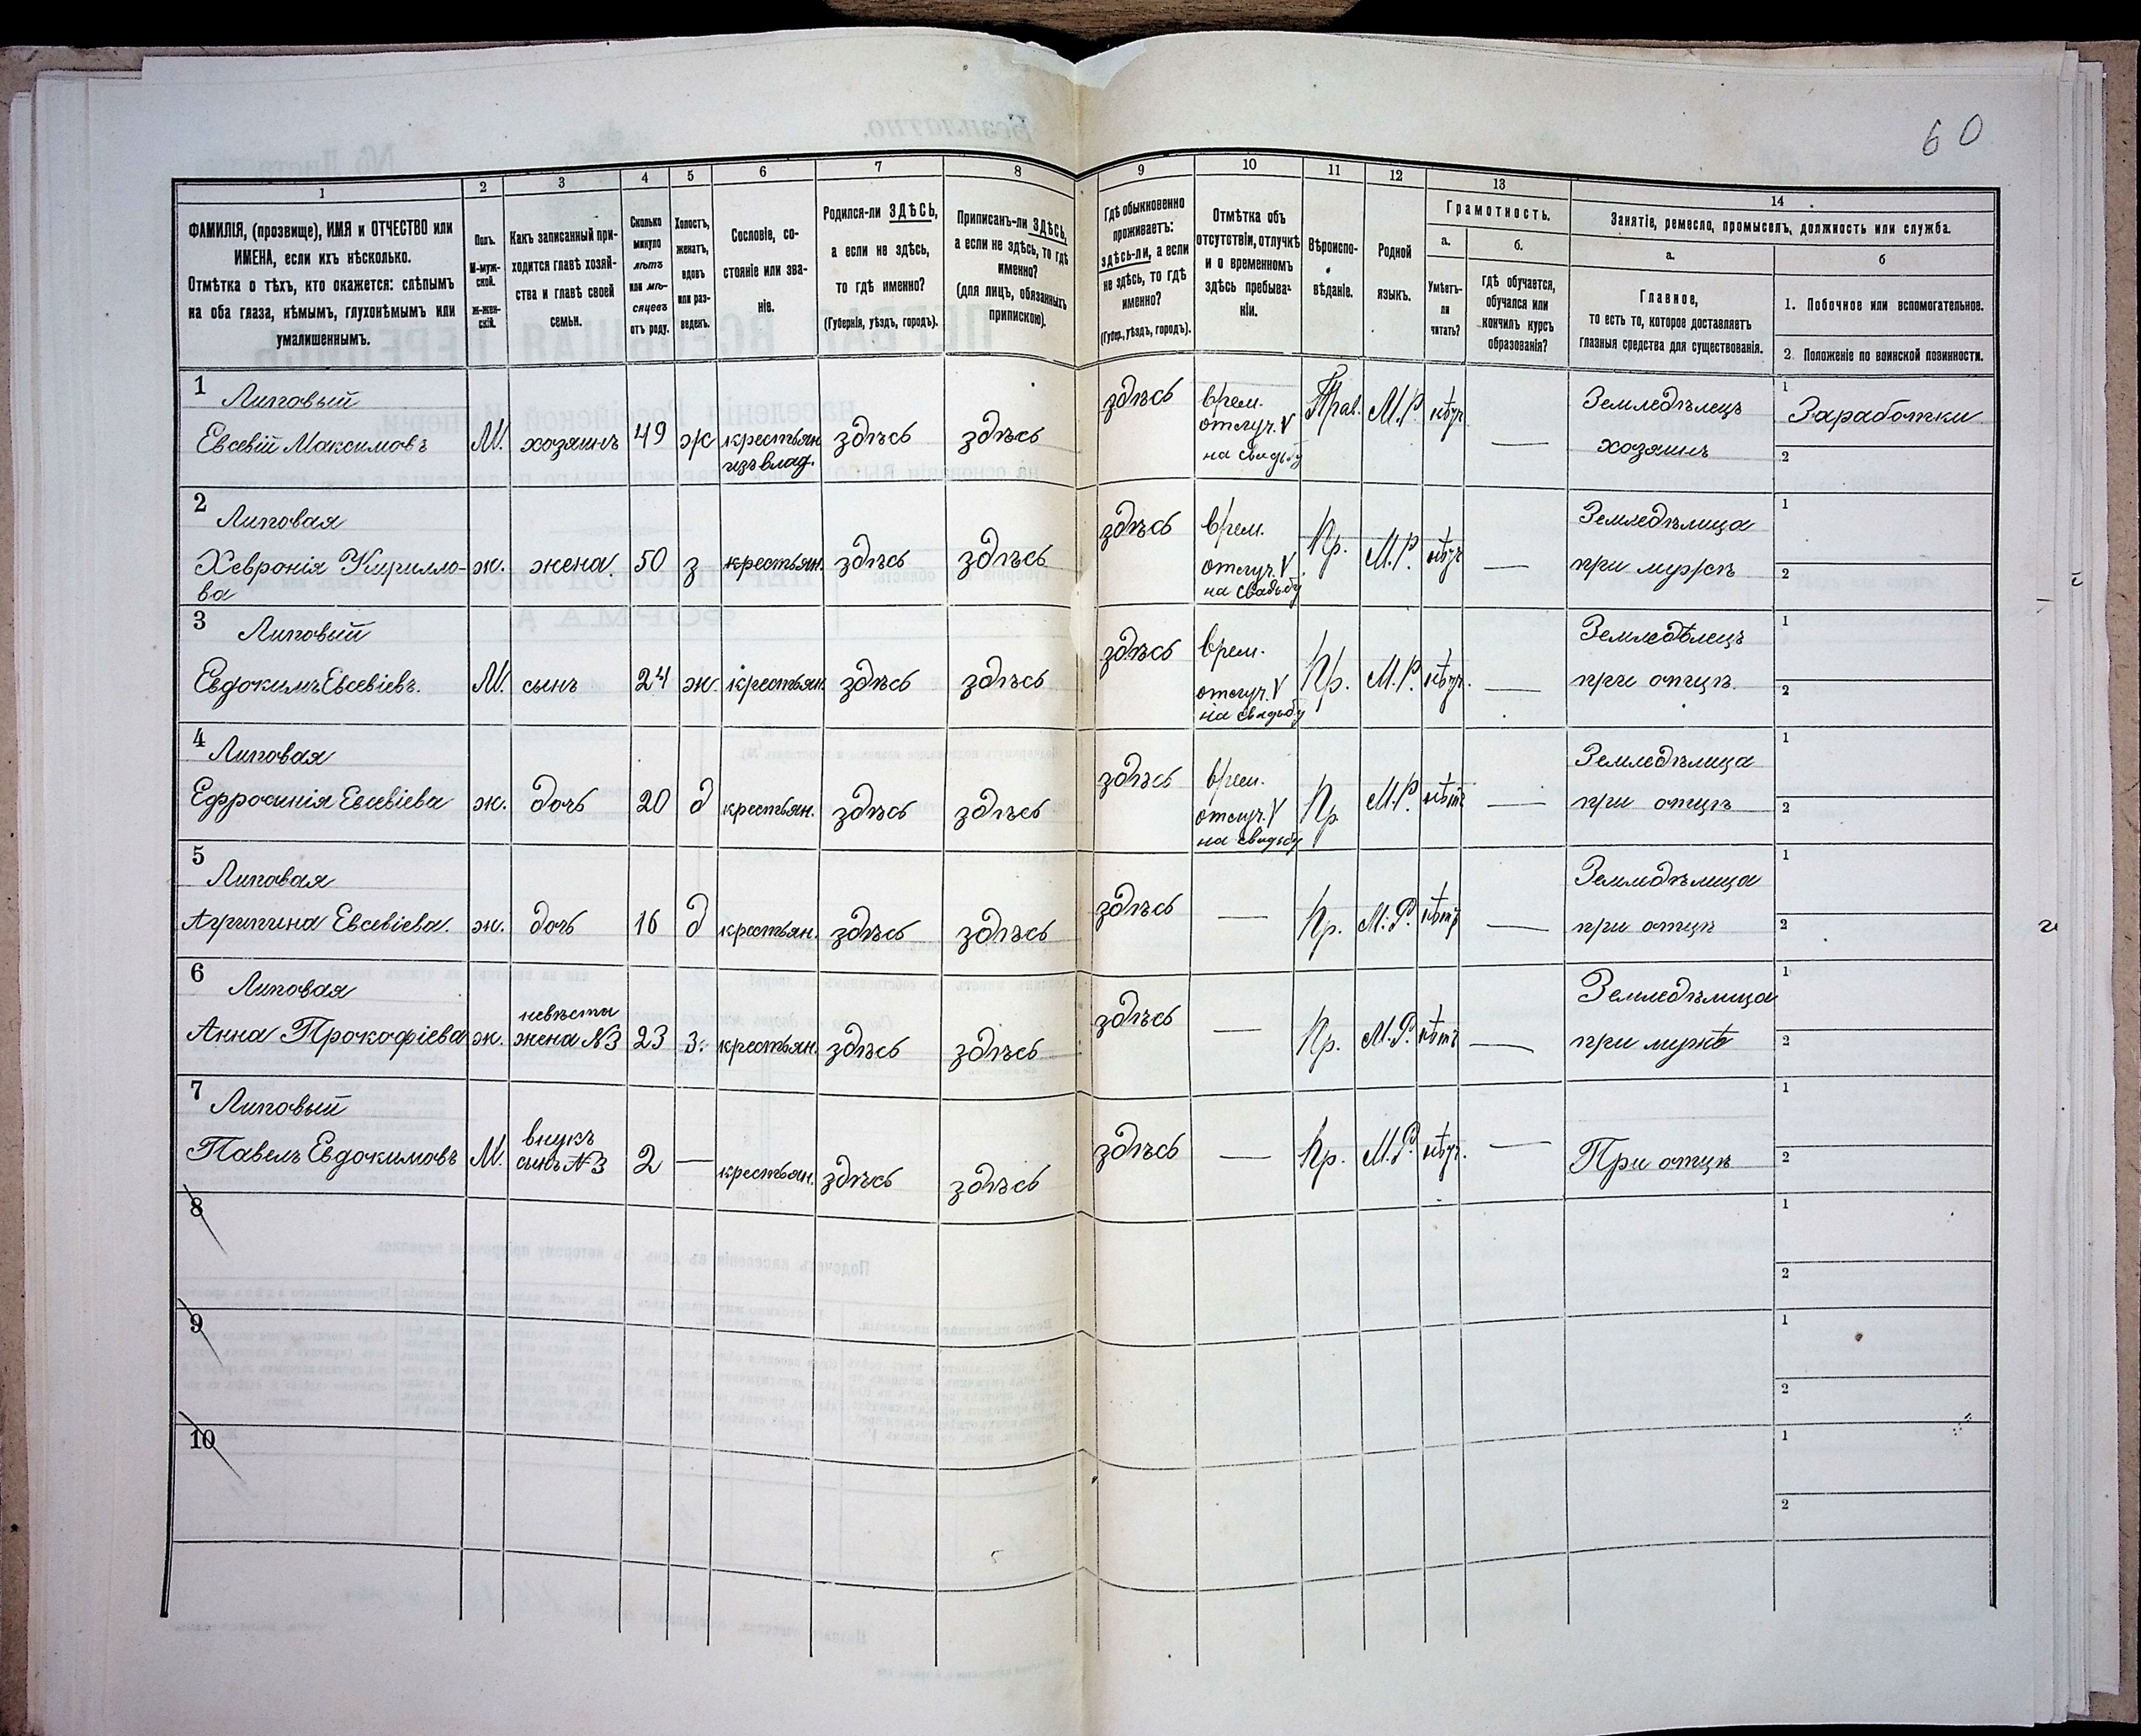 60
1 2 3 4 5 6 7 8 9 10 11 12 13 14
ФАМИЛІЯ, (прозвище), ИМЯ и ОТЧЕСТВО или
ИМЕНА, если ихъ нѣсколько.
Отмѣтка о тѣхъ, кто окажется: слѣпымъ
на оба глаза, нѣмымъ, глухонѣмымъ или
умалишеннымъ.
Полъ.
М-муж-
ской.
Ж-жен-
скій.
Какъ записанный при-
ходится главѣ хозяй-
ства и главѣ своей
семьи.
Сколько
минуло
лѣтъ
или мѣ-
сяцевъ
отъ роду.
Холостъ,
женатъ,
вдовъ
или раз-
веденъ.
Сословіе, со-
стояніе или зва-
ніе.
Родился-ли ЗДѢСЬ,
а если не здѣсь,
то гдѣ именно?
(Губернія, уѣздъ, городъ).
Приписанъ-ли ЗДѢСЬ,
а если не здѣсь, то гдѣ
именно?
(для лицъ, обязанныхъ
припискою).
Гдѣ обыкновенно
проживаетъ:
здѣсь-ли, а если
не здѣсь, то гдѣ
именно?
(Губер., уѣздъ, городъ).
Отмѣтка объ
отсутствіи, отлучкѣ
и о временномъ
здѣсь пребыва-
ніи.
Вѣроиспо-
вѣданіе.
Родной
языкъ.
Грамотность.
а.
Умѣетъ-
ли
читать?
б.
гдѣ обучается,
обучался или
кончилъ курсъ
образованія?
Занятіе, ремесло, промыселъ, должность или служба.
а.
Главное,
то есть то, которое доставляетъ
главныя средства для существованія.
б
1. Побочное или вспомогательное.
2. Положеніе по воинской повинности.
1 Липовый
Евсевій Максимовъ М. хозяинъ 49 ж крестьян. здѣсь здѣсь
изъ влад.
здѣсь врем. Прав. М.Р. Земледѣлецъ 1 Заработки
отлуч. V — хозяинъ
на свадьбу 2
2 Липовая
Хевронія Кирилло- ж. жена. 50 з крестьян. здѣсь здѣсь
ва
здѣсь врем. Пр. М.Р. Земледѣлица 1
отлуч. V — при мужѣ 2
на свадьбу
3 Липовый
Евдокимъ Евсевіевъ. М. сынъ 24 ж. крестьян. здѣсь здѣсь
здѣсь врем. Пр. М.Р. Земледѣлецъ 1
отлуч. V — при отцѣ. 2
на свадьбу
4 Липовая
Ефросинія Евсевіева ж. дочь 20 д крестьян. здѣсь здѣсь
здѣсь врем. Пр. М.Р. нѣтъ Земледѣлица 1
отлуч. V — при отцѣ 2
на свадьбу
5 Липовая
Агрипина Евсевіева. ж. дочь 16 д крестьян. здѣсь здѣсь
здѣсь — Пр. М.Р. нѣтъ — Земледѣлица 1
при отцѣ 2
6 Липовая
невѣстка
Анна Прокофіева ж. жена №3 23 з. крестьян. здѣсь здѣсь
здѣсь — Пр. М.Р. нѣтъ — Земледѣлица 1
при мужѣ 2
7 Липовый
внукъ
Павелъ Евдокимовъ М. сынъ №3 2 — крестьян. здѣсь здѣсь
здѣсь — Пр. М.Р. — При отцѣ 1
2
8 1
2
9 1
2
10 1
2